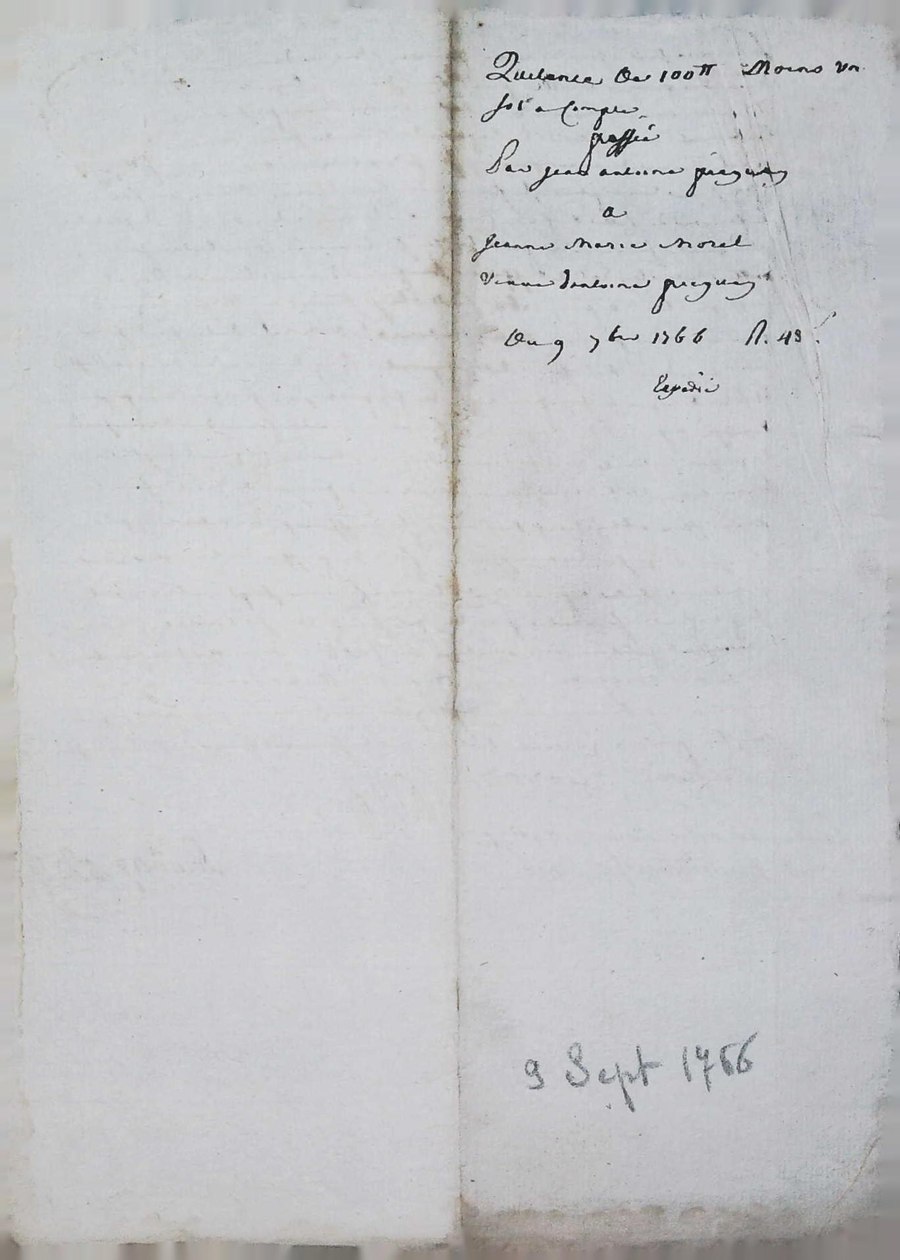 Quitance De 100tt Moins un
sol a Compte
passée
Par jean antoine
a
jeanne Marie Morel
veuve d'antoine
Du 9 7bre 1766 R. 49.
Expedié
9 Sept 1766